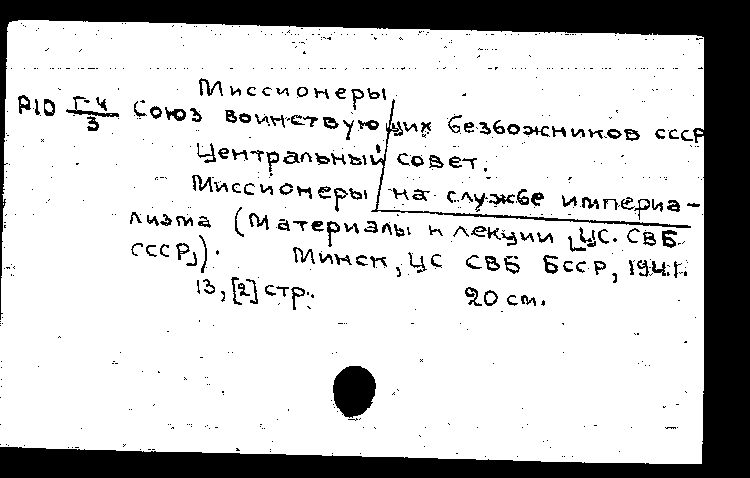 Миссионеры
Р10 Г-4/3 Союз воинствующих безбожников СССР
Центральный совет.
Миссионеры на службе империа-
лизма (Материалы к лекции [ЦС. СВБ
СССР]).      Минск, ЦС СВБ БССР, 1941.
13, [2] стр.      20 см.